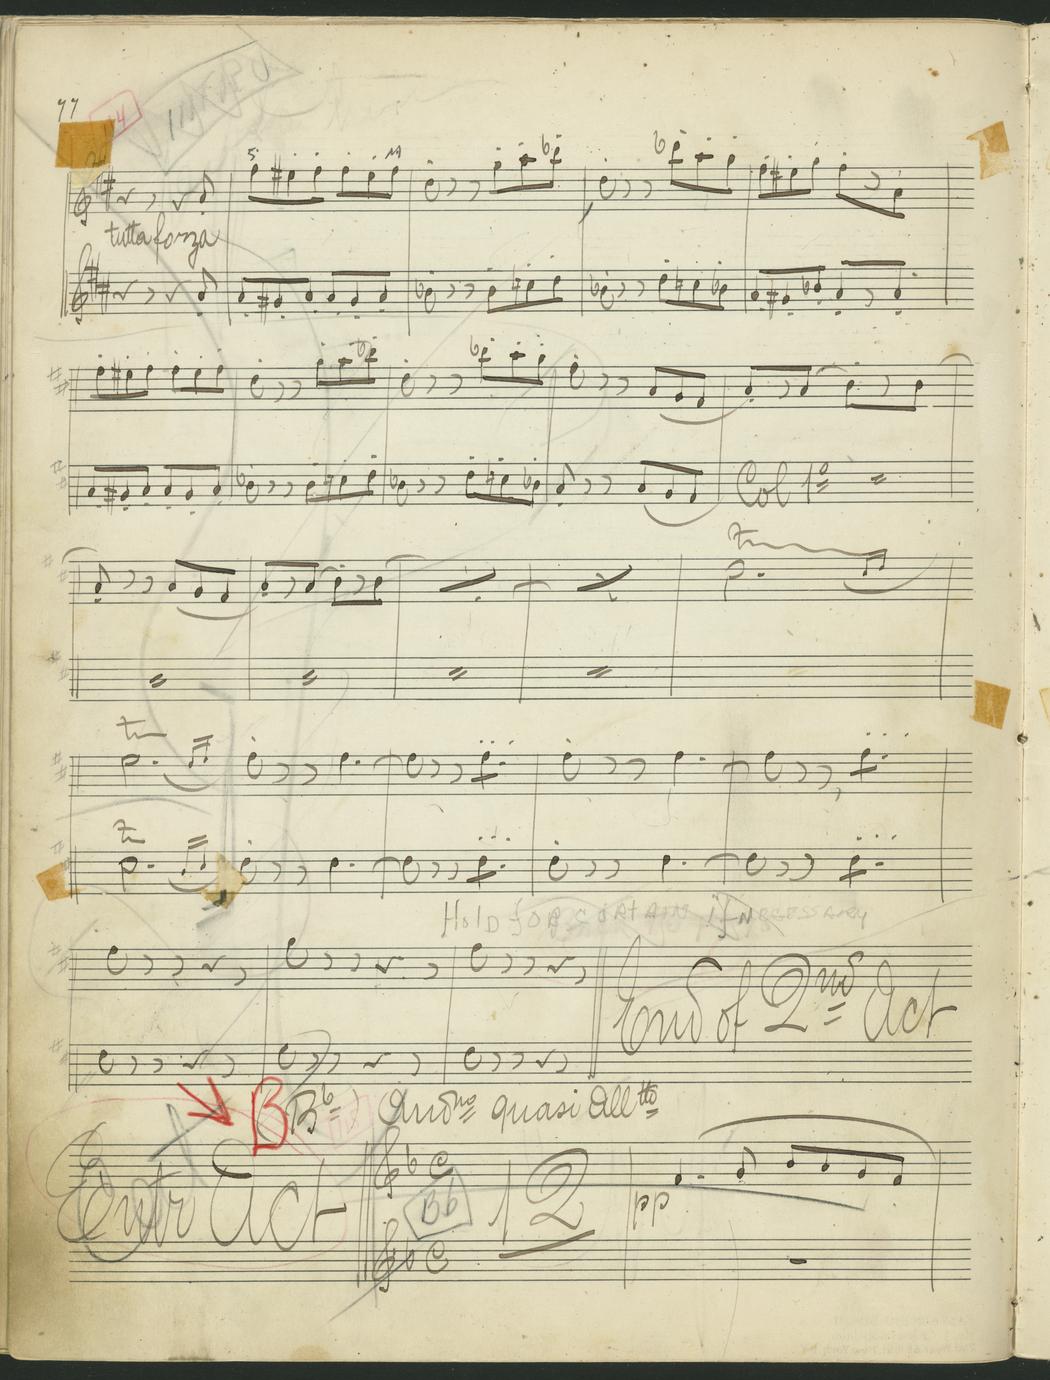 77
14
tutta forza
Col 1º
tr
tr
tr
Hold for curtain if necessary
End of 2nd Act
B Bb Andno quasi Alltto
Entr Act
Bb
12
pp